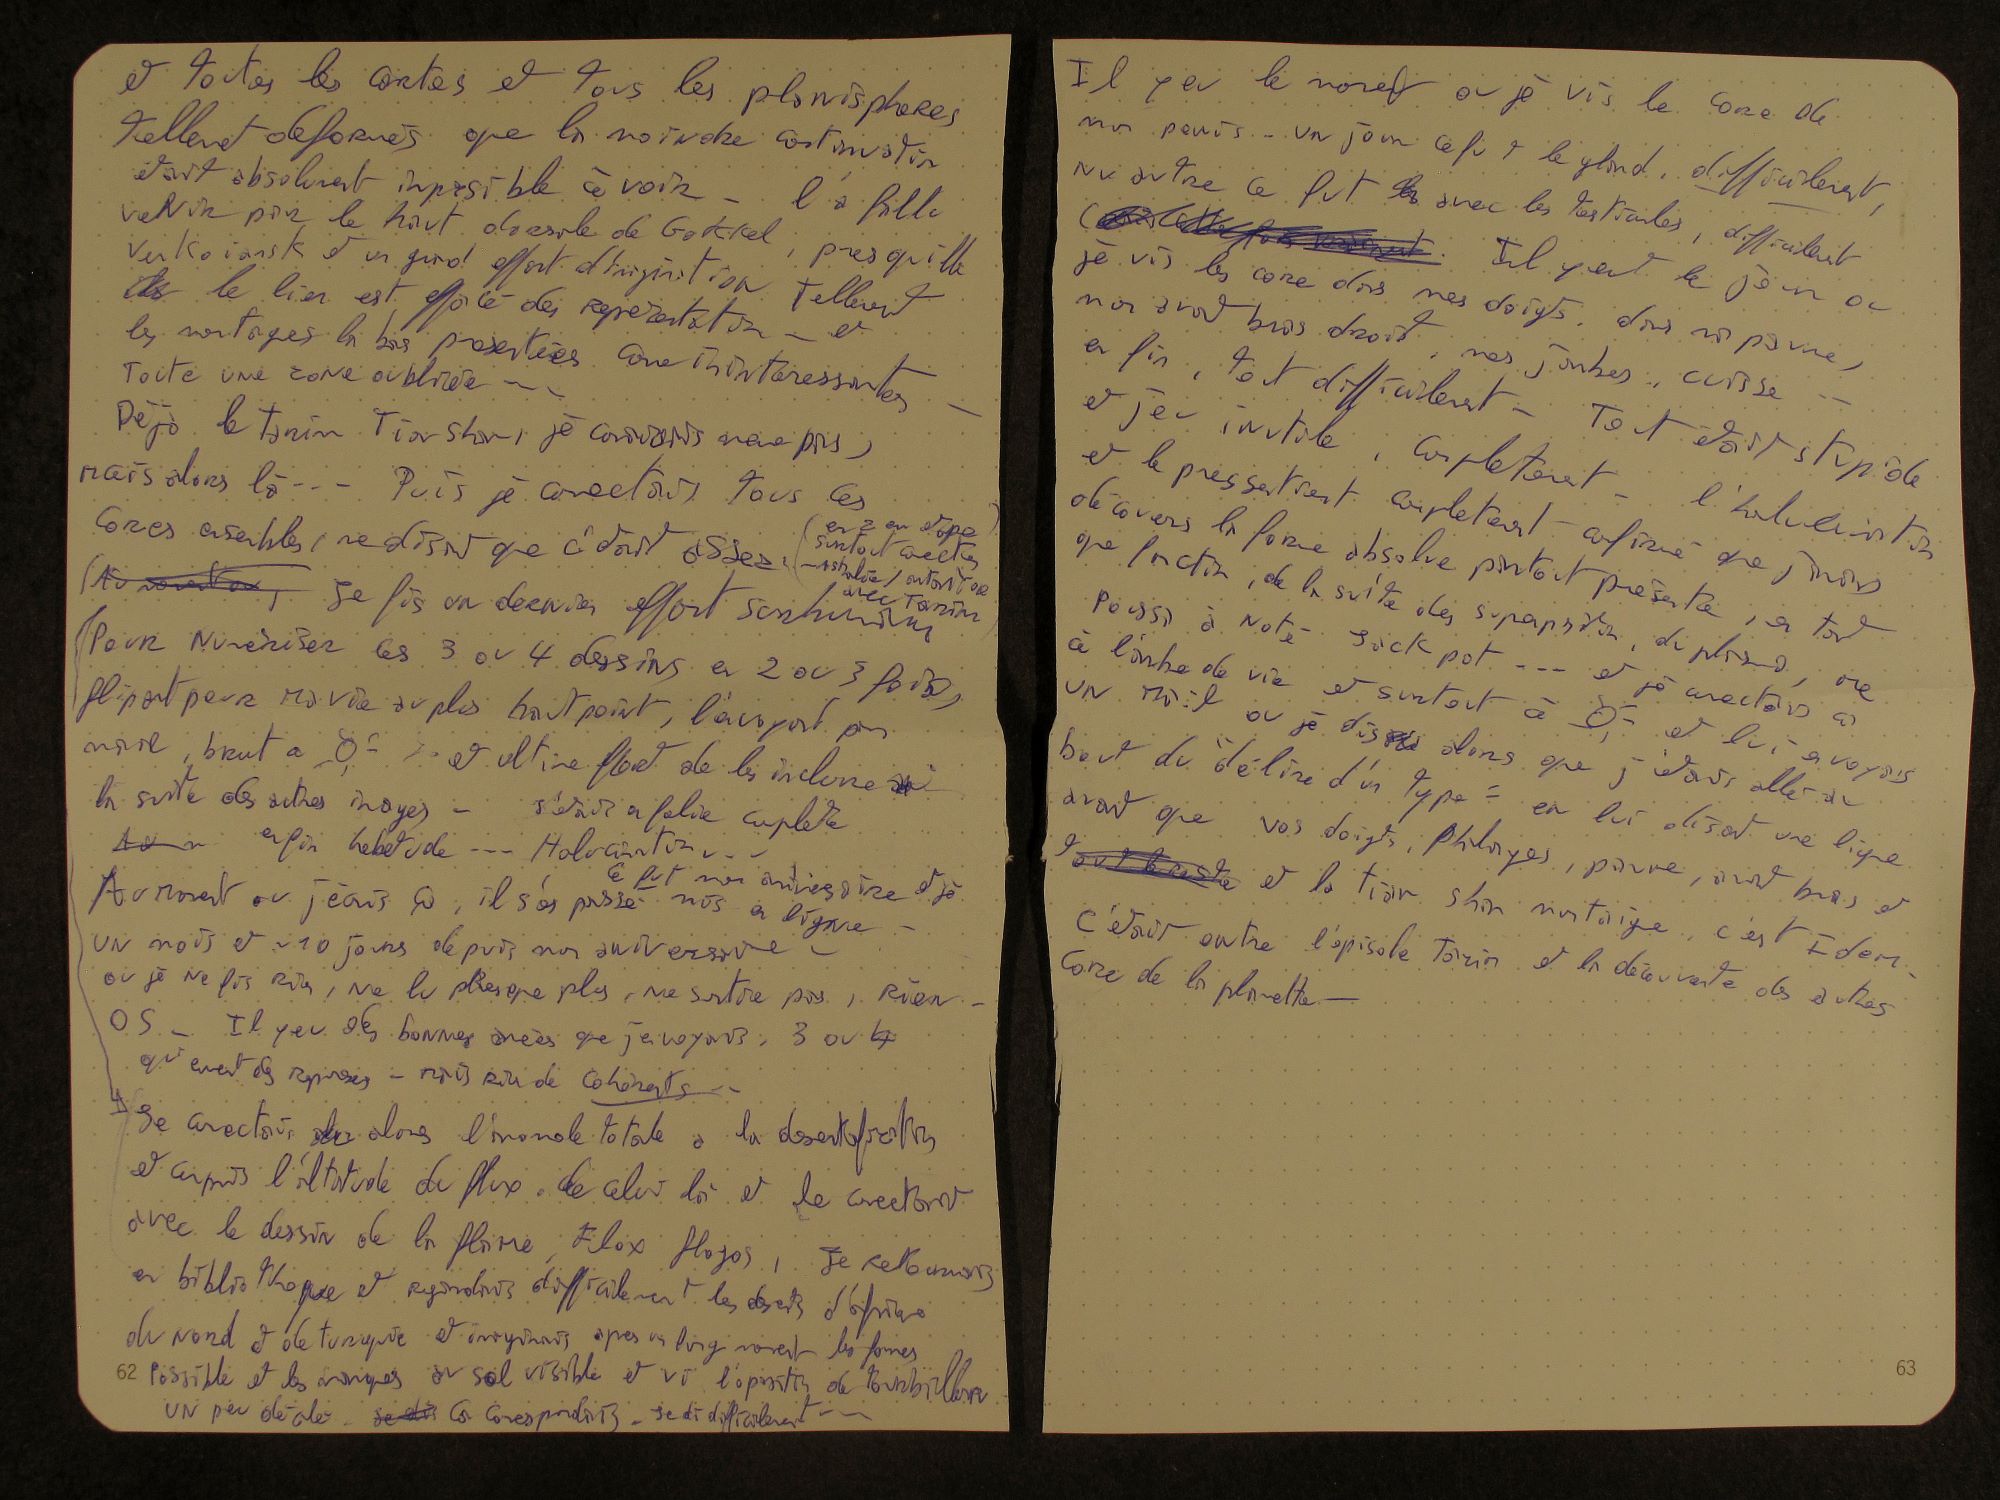 et toutes les cartes et tous les planispheres
tellemt deformés que la moindre continuation
était absolument impossible à voir _ l'a fallu
venir par le haut dorsale de Gakkel, presqu'ille
Verkoiansk et un grand effort d'imagination tellemt
le lien est effacé des représentation _ et
les montages la bas presentées come ininteressantes _
toute une zone oubliée ---
Déjà le tarim Tianshan, je conaissais meme pas,
mais alors là --- Puis je conectais tous ces
cores ensembles, me disant que c'était assez.
surtout
avec Tarim
Je fis un dernier effort surhumain
Pour numériser les 3 ou 4 dessins en 2 ou 3 fois,
flipant pour ma vie au plus haut point, l'envoyant par
mail, brut a et ultime effort de les inclure
la suite des autres images _ J'étais en folie complete
enfin hebetude --- Halucination ---
Ce fut mon aniversaire et je
Au moment ou j'écris ça, il s'es passé mis en ligne _
un mois et ~10 jours depuis mon aniversaire _
ou je ne fis rien, ne lu presque plus, ne sortire pas, rien _
OS _ Il y eu des bonnes années que j'envoyais, 3 ou 4
qui eurent des reponses _ mais rien de cohérents --
Je conectais alors l'imanole totale a la desertification
et compris l'altitude du flux de celui là et le conectant
avec le dessin de la flame, Flox flogos, je retournais
en bibliotheque et regardais difficilement les deserts d'afrique
du nord et de turquie et imaginais apres un long moment les formes
62 Possible et les manques au sol visible et vi l'oposition de tourbillons
un peu décalé _ Ca corespondais _ se di difficilement ---
Il y eu le moment ou je vis le core de
mon penis _ un jour ce fut le gland, difficilement,
un autre ce fut avec les testicules, difficilement
Il y eut le jour ou
je vis les core dans mes doigts, dans ma paume,
mon avant bras droit, mes jambes, cuisse --
enfin, tout difficilement _ Tout était stupide
et jeu inutile, completement _ l'halucination
et le pressentiment completement confirmé que j'avais
découvers la forme absolue partout présente, en tant
que fonction, de la suite des superposition, du plasma, one
Poussa à noté Jack pot --- et je conectais à
à l'arbre de vie et surtout à et lui envoyais
un mail ou je disais alors que j'étais allé au
bout du délire d'un type = en lui disant une ligne
avant que vos doigts, Phalanges, paume, avant bras et
et la tian shan montaigne, c'est Idem _
c'était entre l'episode Tarim et la découverte des autres
Core de la planette _
63